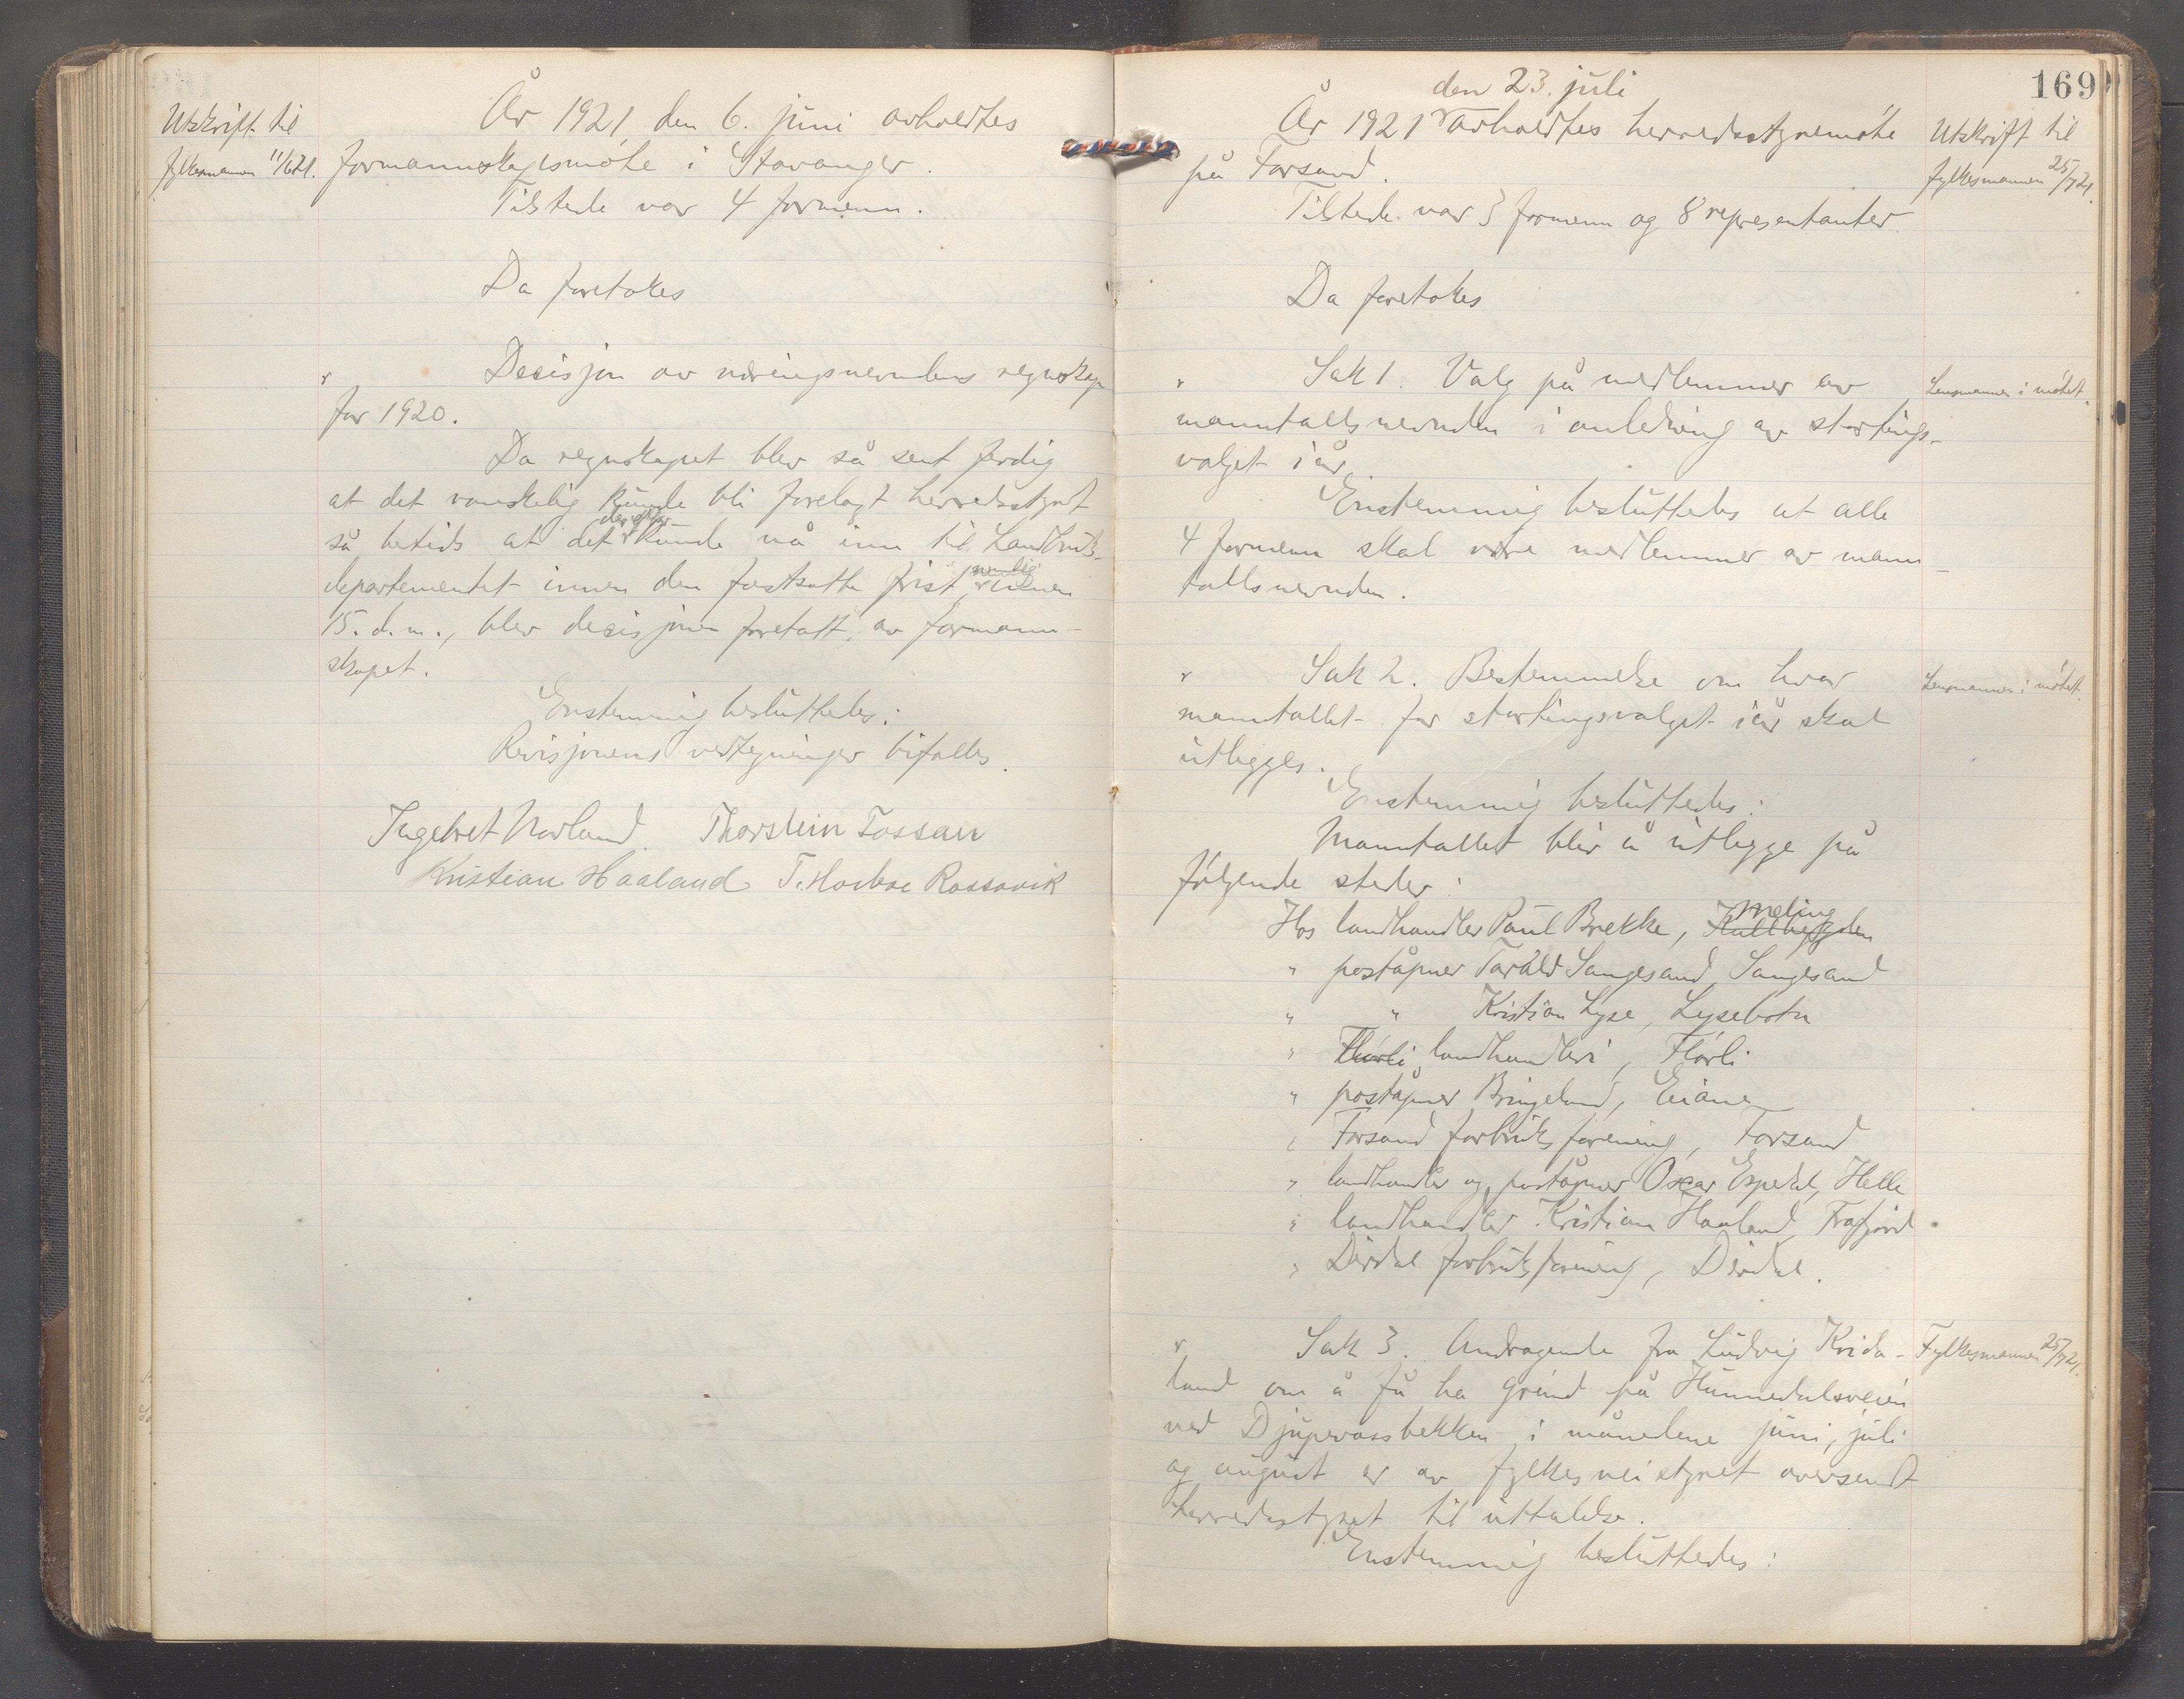 Utskrift til
fylkesmannen 11/6 21.
År 1921 den 6. juni avholdtes
formannskapsmøte i Stavanger.
Tilstede var 4 formenn.
Da foretokes
Decisjon av næringsnevndens regnskap
for 1920.
Da regnskapet blev så sent ferdig
at det vanskelig kunde bli forelagt herredsstyret
så betids at det derefter kunde nå inn til Landbruks-
departementet innen den fastsatte frist, nemlig innen
15. d. m., blev decisjonen foretatt av formann-
skapet.
Enstemmig besluttedes:
Revisjonens vedtegninger bifalles.
Ingebret Norland. Thorstein Fossan
Kristian Haaland T. Rossavik
169
den 23. juli
År 1921 avholdtes herredsstyremøte
på Forsand.
Utskrift til
fylkesmannen 25/7 21.
Tilstede var 3 formenn og 8 representanter.
Da foretokes
Sak 1. Valg på medlemmer av
manntallsnevnden i anledning av stortings-
valget i år.
Lensmannen i møtet.
Enstemmig besluttedes at alle
4 formenn skal være medlemmer av mann-
tallsnevnden.
Sak 2. Bestemmelse om hvor
manntallet for stortingsvalget i år skal
utlegges.
Lensmannen i møtet.
Enstemmig besluttedes:
Manntallet blir å utlegge på
følgende steder:
Hos landhandler Paul Brekke, Meling
" poståpner Tarald Songesand, Songesand
" " Kristian Lyse, Lysebotn
" Flørli landhandleri, Flørli
" poståpner Bringeland, Eiane
" Forsand forbruksforening, Forsand
" landhandler og poståpner Oscar Espedal, Helle
" landhandler Kristian Haaland, Frafjord.
" Dirdal forbruksforening, Dirdal.
Sak 3. Andragende fra Ludvig Krida-
land om å få ha grind på Hunnedalsveien
ved Djupevassbekken i månedene juni, juli
og august er av fylkesveistyret oversendt
herredsstyret til uttalelse.
Fylkesmannen 25/7 21.
Enstemmig besluttedes: